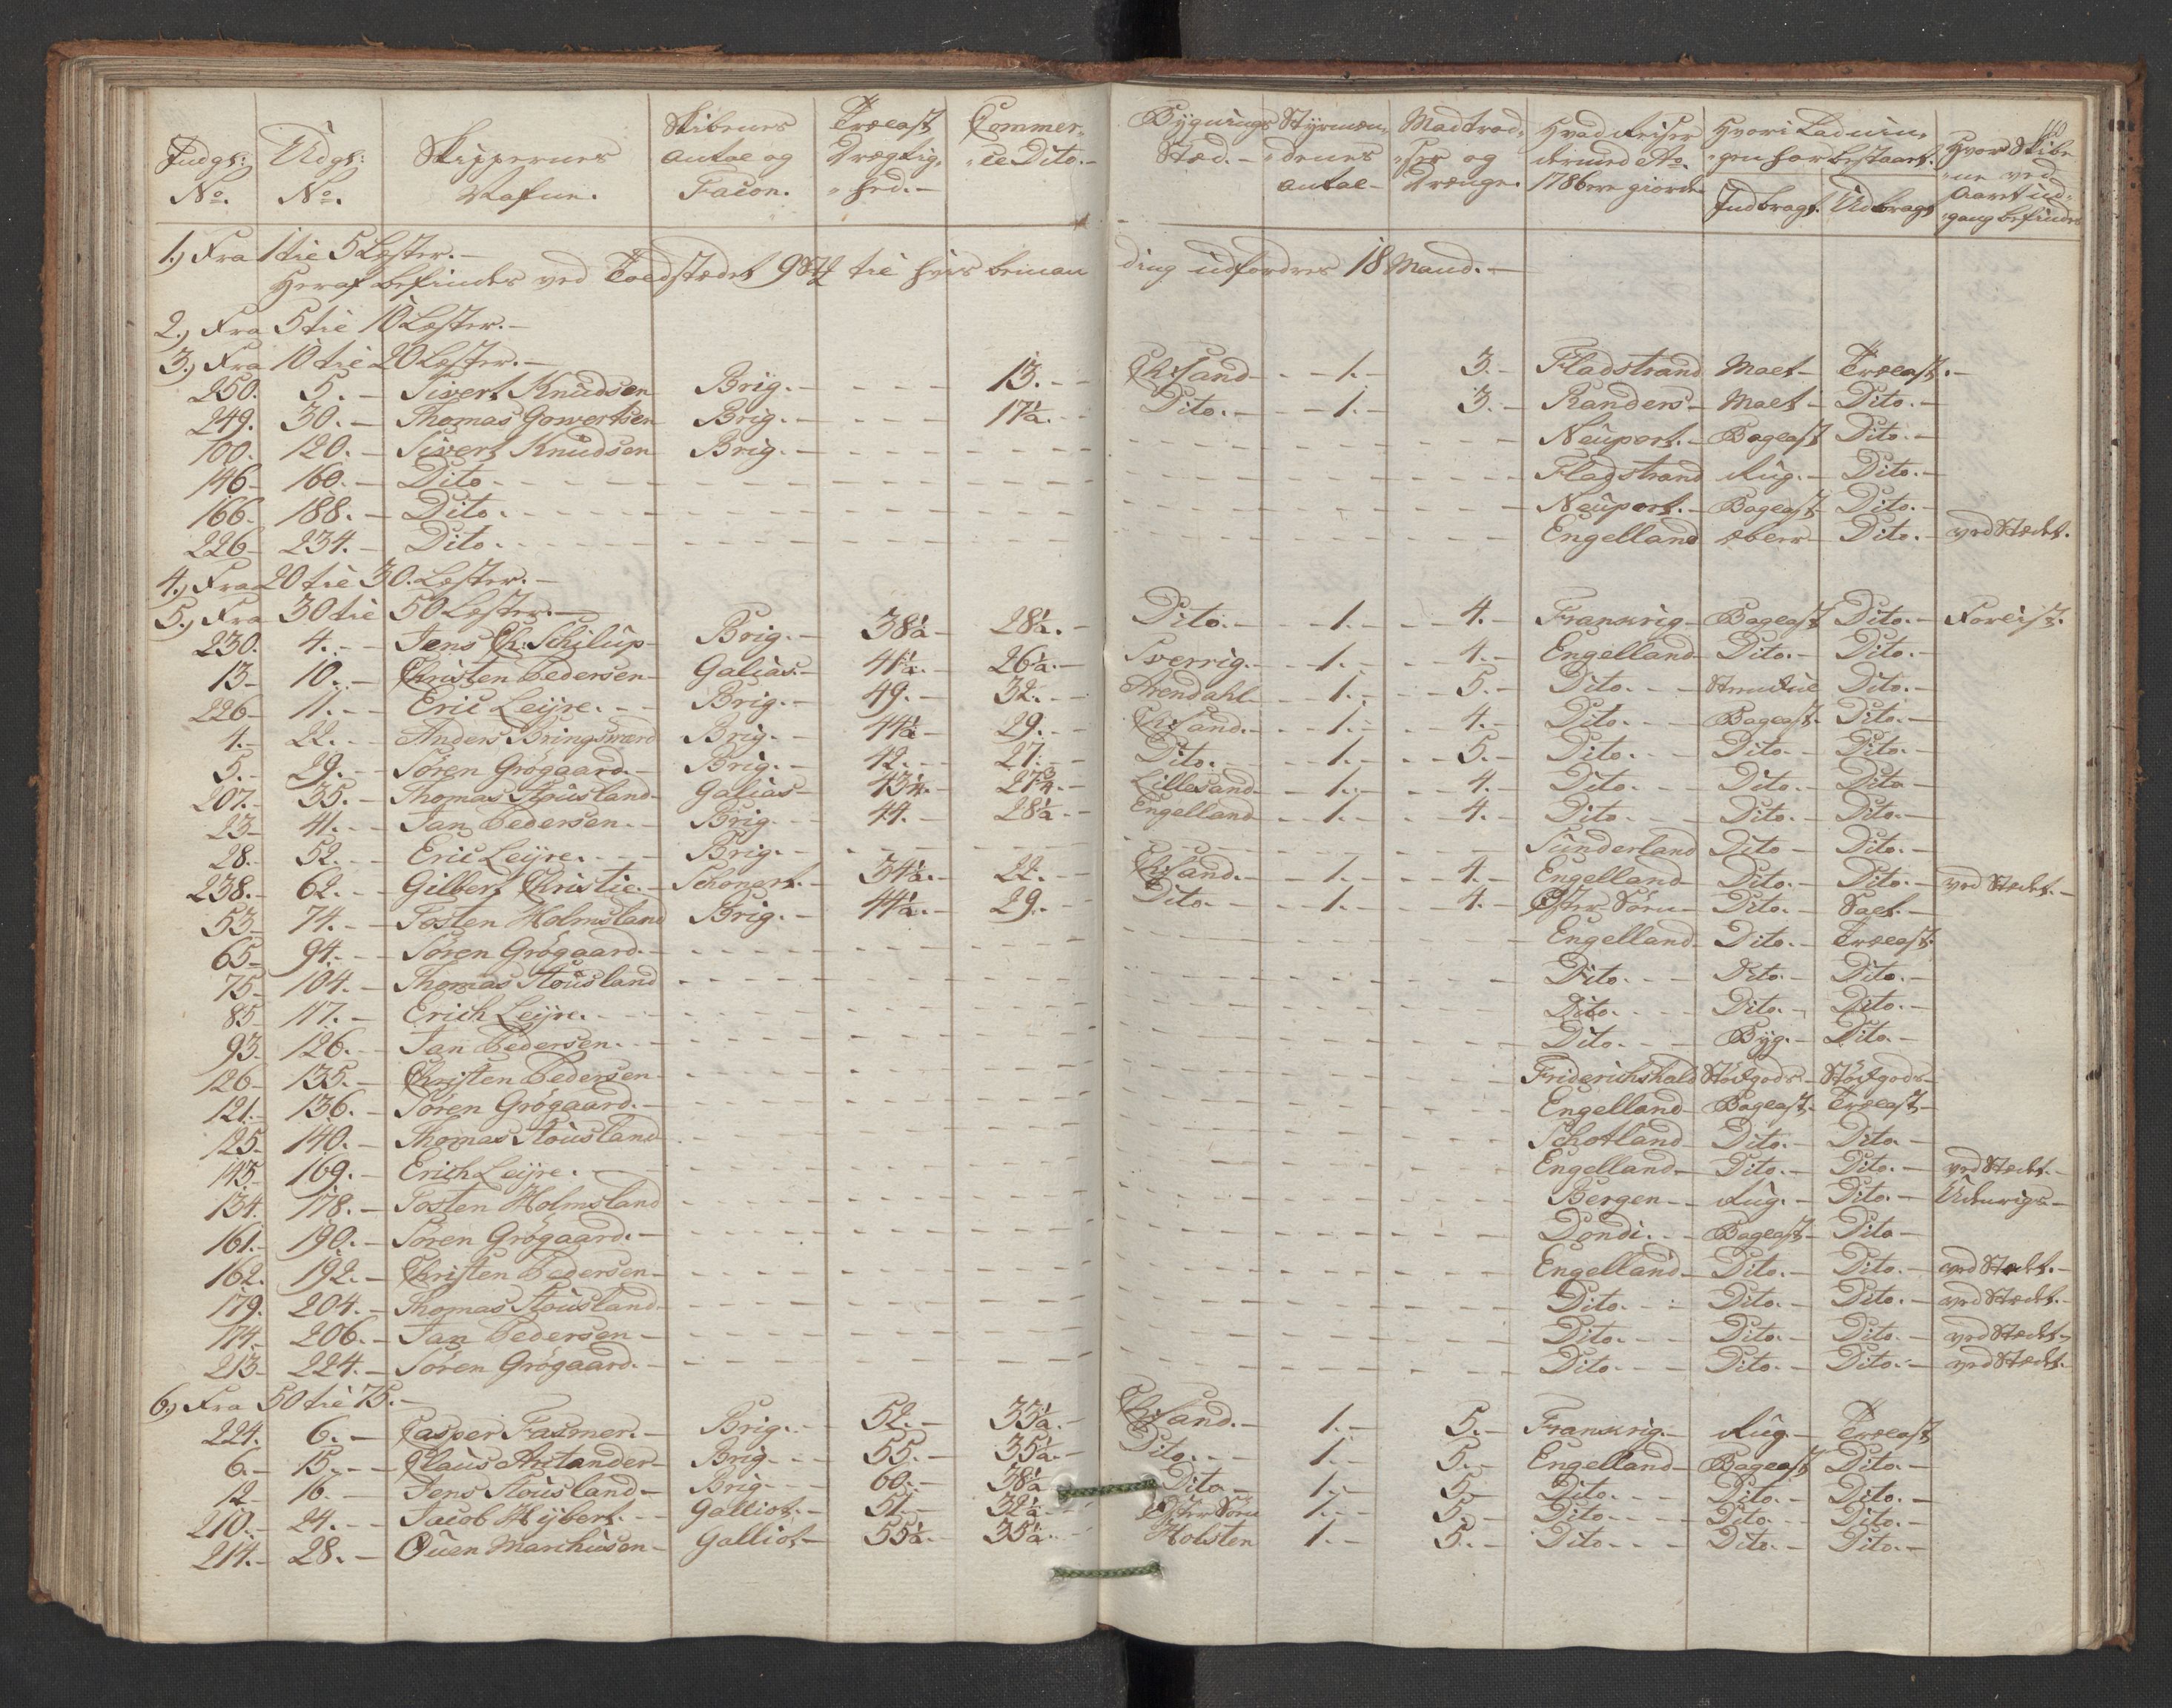 110
Indgl: No. | Udgl: No. | Skippernes Nafne. | Skibenes Antal og Facon. | Trælast Drægtig„hed.- | Commer„ce Dito.- | Bygnings Stæd.- | Styrmæn„denes antal- | Madtrod„ser og Drænge. | Hvad Reiser dermed Ao. 1786 ere giorde | Hvori Ladnin„gen har bestaaet. Indbragt. Udbragt | Hvor Skibe„ne ved Aarets ud„gang befindes
1.) Fra 1 til 5 Læster.-
Heraf befindes ved Toldstædet 9 St til hvis beman ding udfordres 18 Mand.-
2.) Fra 5 til 10 Læster.-
3.) Fra 10 til 20 Læster.-
250. 5.- Sivert Knudsen Brig.- 13.- Ch:Sand- 1.- 3.- Fladstrand Malt- Trælast.-
249. 30.- Thomas Gowertsen Brig.- 17½.- Dito.- 1.- 3.- Randers- Malt- Dito.-
100. 120.- Sivert Knudsen Brig.- Neuport.- Baglast Dito.-
146- 160.- Dito- Fladstrand Rug.- Dito.-
166. 188.- Dito. Neuport.- Baglast- Dito.-
226- 234.- Dito. Engelland Dito.- ved Stædet.
4.) Fra 20 til 30. Læster.-
5.) Fra 30 til 50 Læster.-
230. 4.- Jens Ch: Schilup- Brig.- 38½- 28½.- Dito.- 1.- 4.- Frankrig- Baglast Dito.- Forlist.
13- 10.- Christen Pedersen- Galias.- 41½.- 26½.- Sverrig.- 1.- 4.- Engelland- Dito.- Dito.-
226- 11.- Eric Leijre.- Brig.- 49.- 32.- Arendahl- 1.- 5.- Dito.- Dito.-
4.- 22.- Anders Bringsværd Brig.- 44½- 29.- Ch:Sand.- 1.- 4.- Dito.- Baglast- Dito.-
5.- 29.- Søren Grögaard.- Brig.- 42.- 27.- Dito.- 1.- 5.- Dito.- Dito.- Dito.-
207.- 35.- Thomas Stousland- Galias- 43¼.- 27¾.- Lillesand- 1.- 4.- Dito.- Dito.- Dito-
23- 41.- Jan Pedersen.- Brig.- 44.- 28½- Engelland- 1.- 4.- Dito- Dito.- Dito.-
28.- 52.- Eric Leijre.- Brig.- Sunderland Dito- Dito.-
238.- 62.- Gilbert Christie.- Schonert.- 34½.- 22.- Ch:Sand.- 1.- 4.- Engelland- Dito.- Dito.- ved Stædet.-
53- 74.- Tosten Holmsland Brig.- 44½.- 29.- Dito.- 1.- 4.- Øster Søen- Dito.- Salt.-
65- 94.- Søren Grögaard.- Engelland- Dito.- Trælast.
75- 104.- Thomas Stousland Dito.- Dito.- Dito.-
85- 117.- Erich Leijre.- Dito.- Dito.- Dito.-
93.- 126.- Jan Pedersen.- Dito.- Byg.- Dito.-
126- 135.- Christen Pedersen- Friderichshald Stökgods- Stökgods-
121.- 136.- Søren Grögaard.- Engelland- Baglast- Trælast-
125- 140.- Thomas Stousland- Schotland- Dito.- Dito-
143- 169.- Erich Leijre.- Engelland- Dito.- Dito.- ved Stædet.-
134. 178.- Tosten Holmsland Bergen- Rug.- Dito.- Udenrigs-
161.- 190.- Søren Grögaard.- Dondi.- Baglast- Dito-
162. 192.- Christen Pedersen- Engelland- Dito.- Dito.- ved Stædet.-
179. 204.- Thomas Stousland- Dito.- Dito.- Dito.- ved Stædet.-
174.- 206.- Jan Pedersen- Dito.- Dito.- Dito.- ved Stædet-
213- 224.- Søren Grögaard.- Dito.- Dito.- Dito.- ved Stædet.-
6.) Fra 50 til 75.-
224. 6.- Casper Fasmer.- Brig.- 52.- 33½.- Ch:Sand.- 1.- 5.- Frankrig.- Rug.- Trælast
6.- 15.- Claus Artander- Brig- 55.- 35½.- Dito.- 1.- 5.- Engelland- Baglast Dito.-
12- 16- Jens Stousland- Brig- 60.- 38½ Dito- 1.- 5- Dito.- Dito.- Dito.-
210.- 24.- Jacob Heybert.- Galliot.- 51.- 32½- Øster Søen 1.- 5.- Dito- Dito.- Dito.-
214.- 28.- Ouen Marchusen- Galliot- 55½.- 35½.- Holsten 1.- 5.- Dito.- Dito.- Dito.-